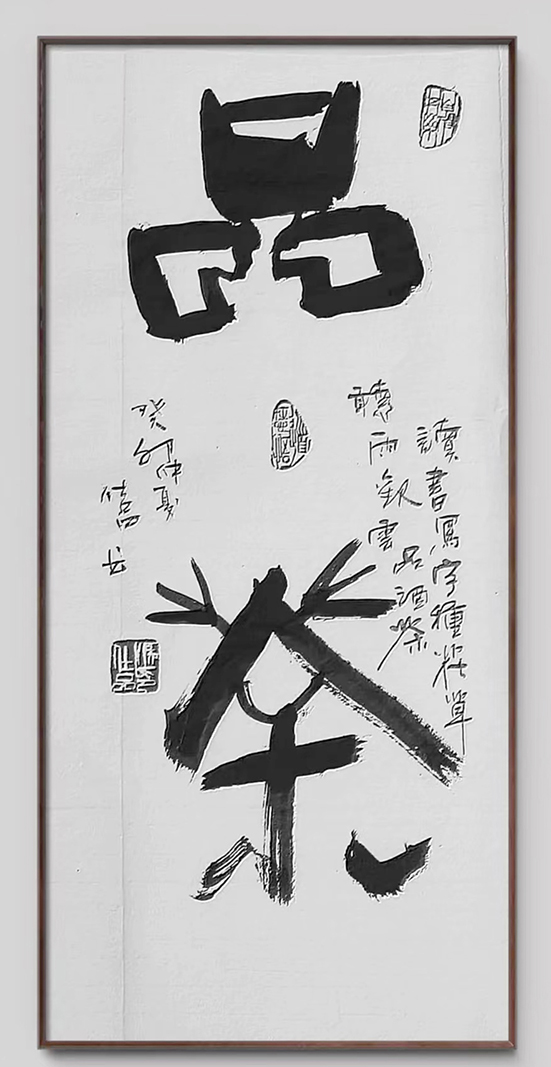 品茶
讀書寫字種花草
聽雨觀雲品酒茶
癸卯仲夏